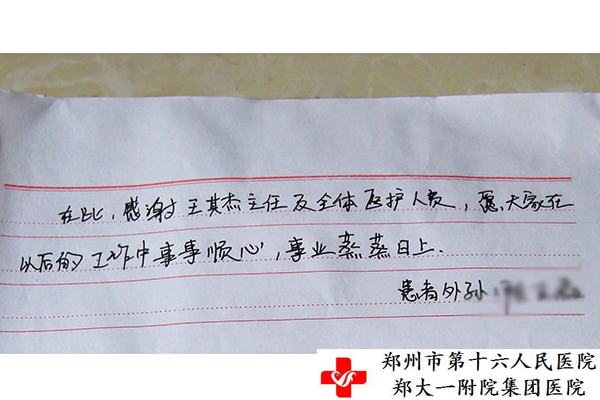 在此，感谢王其杰主任及全体医护人员，愿大家在
以后的工作中事事顺心，事业蒸蒸日上.
患者外孙:
郑州市第十六人民医院
郑大一附院集团医院